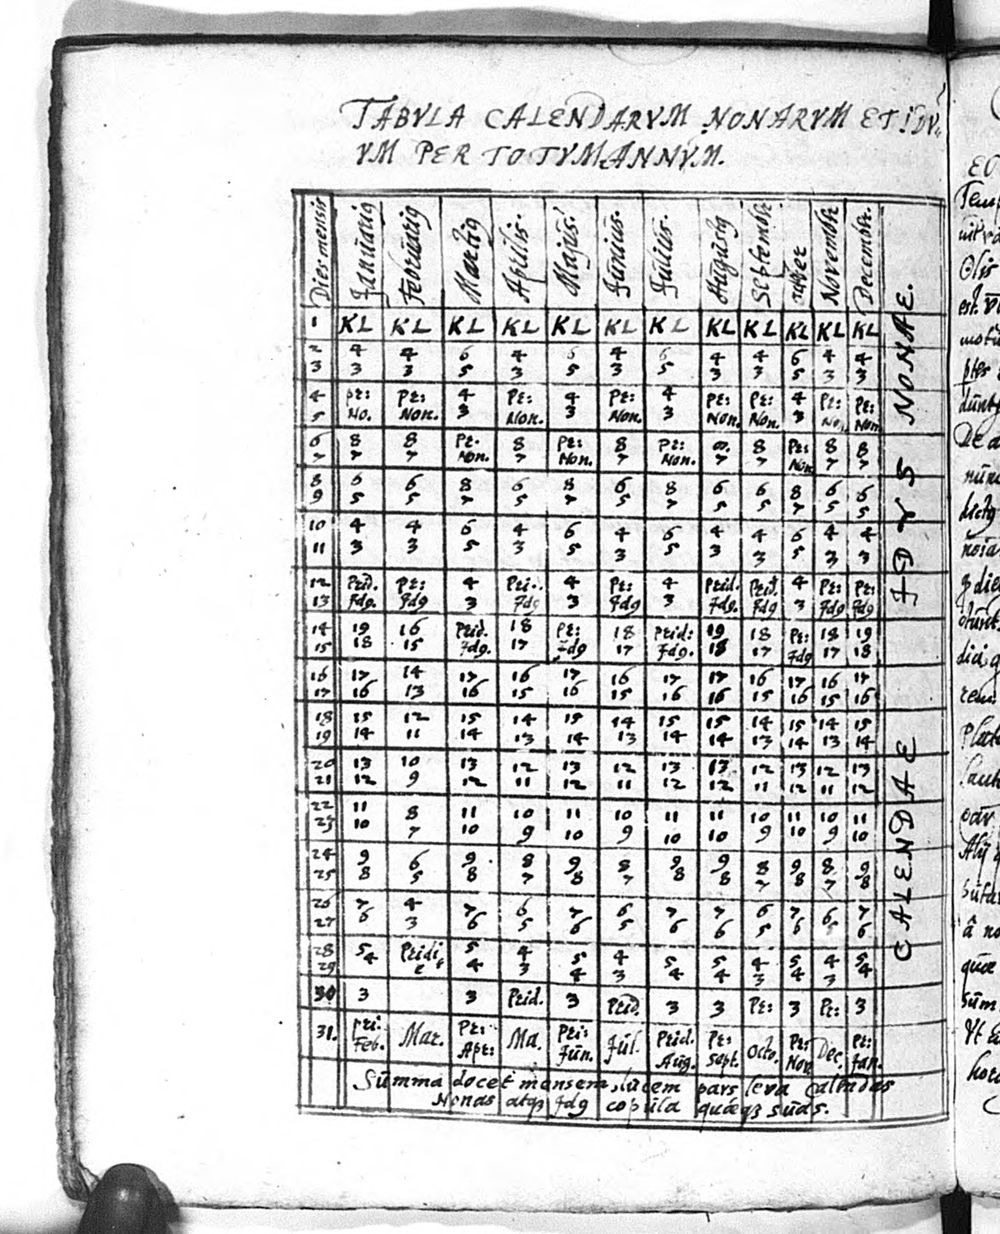 TABVLA CALENDARVM NONARVM ET IDV,,
VM PER TOTVM ANNVM.
Dies mensis Januarig Februarig Martig Aprilis. Majus. Junius. Julius. Augustg Septembr. october Novembr. Decembr.
1 KL KL KL KL KL KL KL KL KL KL KL KL
2 4 4 6 4 6 4 6 4 4 6 4 4
3 3 3 5 3 5 3 5 3 3 5 3 3
4 pr: Pr: 4 Pr: 4 Pr: 4 Pr: Pr: 4 Pr: Pr:
5 No. Non. 3 Non. 3 Non. 3 Non. Non. 3 No. Non
6 8 8 Pr. 8 Pr: 8 Pr: 8. 8 Pr: 8 8
7 7 7 Non. 7 Non. 7 Non. 7 7 Non 7 7
8 6 6 8 6 8 6 8 6 6 8 6 6
9 5 5 7 5 7 5 7 5 5 7 5 5
10 4 4 6 4 6 4 6 4 4 6 4 4
11 3 3 5 3 5 3 5 3 3 5 3 3
12 Prid. Pr: 4 Pri. 4 Pr: 4 Prid. Prid. 4 Pr: Pr:
13 Jdg. Jdg 3 Jdg 3 Jdg 3 Jdg. Jdg 3 Jdg Jdg
14 19 16 Prid. 18 Pr: 18 Prid: 19 18 Pr: 18 19
15 18 15 Jdg. 17 Jdg 17 Jdg. 18 17 Jdg 17 18
16 17 14 17 16 17 16 17 17 16 17 16 17
17 16 13 16 15 16 15 16 16 15 16 15 16
18 15 12 15 14 15 14 15 15 14 15 14 15
19 14 11 14 13 14 13 14 14 13 14 13 14
20 13 10 13 12 13 12 13 13 12 13 12 13
21 12 9 12 11 12 11 12 12 11 12 11 12
22 11 8 11 10 11 10 11 11 10 11 10 11
23 10 7 10 9 10 9 10 10 9 10 9 10
24 9 6 9 8 9 8 9 9 8 9 8 9
25 8 5 8 7 8 7 8 8 7 8 7 8
26 7 4 7 6 7 6 7 7 6 7 6 7
27 6 3 6 5 6 5 6 6 5 6 5 6
28 5 Pridi 5 4 5 4 5 5 4 5 4 5
29 4 e 4 3 4 3 4 4 3 4 3 4
30 3 3 Prid. 3 Prid. 3 3 Pr: 3 Pr: 3
31. Pri: Mar. Pr: Ma. Pri: Jul. Prid. Pr: Octo. Pr: Dec. Pr:
Feb. Apr: Jun. Aug. Sept. Nov Jan.
NONAE.
IDVS
CALENDAE
Summa docet mensem, lucem pars leva Calendas
Nonas atq3 Jdg copula quaeq3 suas.